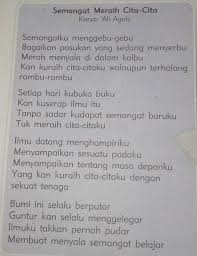 Semangat Meraih Cita-Cita
Karya: Ali Aguis
Semangatku menggebu-gebu
Bagaikan pasukan yang sedang menyerbu
Merah menyala di dalam kalbu
Kan kuraih cita-citaku walaupun terhalang
rambu-rambu
Setiap hari kubuka buku
Kan kuserap ilmu itu
Tanpa sadar kudapat semangat baru
Tuk meraih cita-citaku
Ilmu datang menghampiriku
Menyampaikan sesuatu padaku
Menyampaikan tentang masa depanku
Yang kan kuraih cita-citaku dengan
sekuat tenaga
Bumi ini selalu berputar
Guntur kan selalu menggelegar
Ilmuku takkan pernah pudar
Membuat menyala semangat belajar